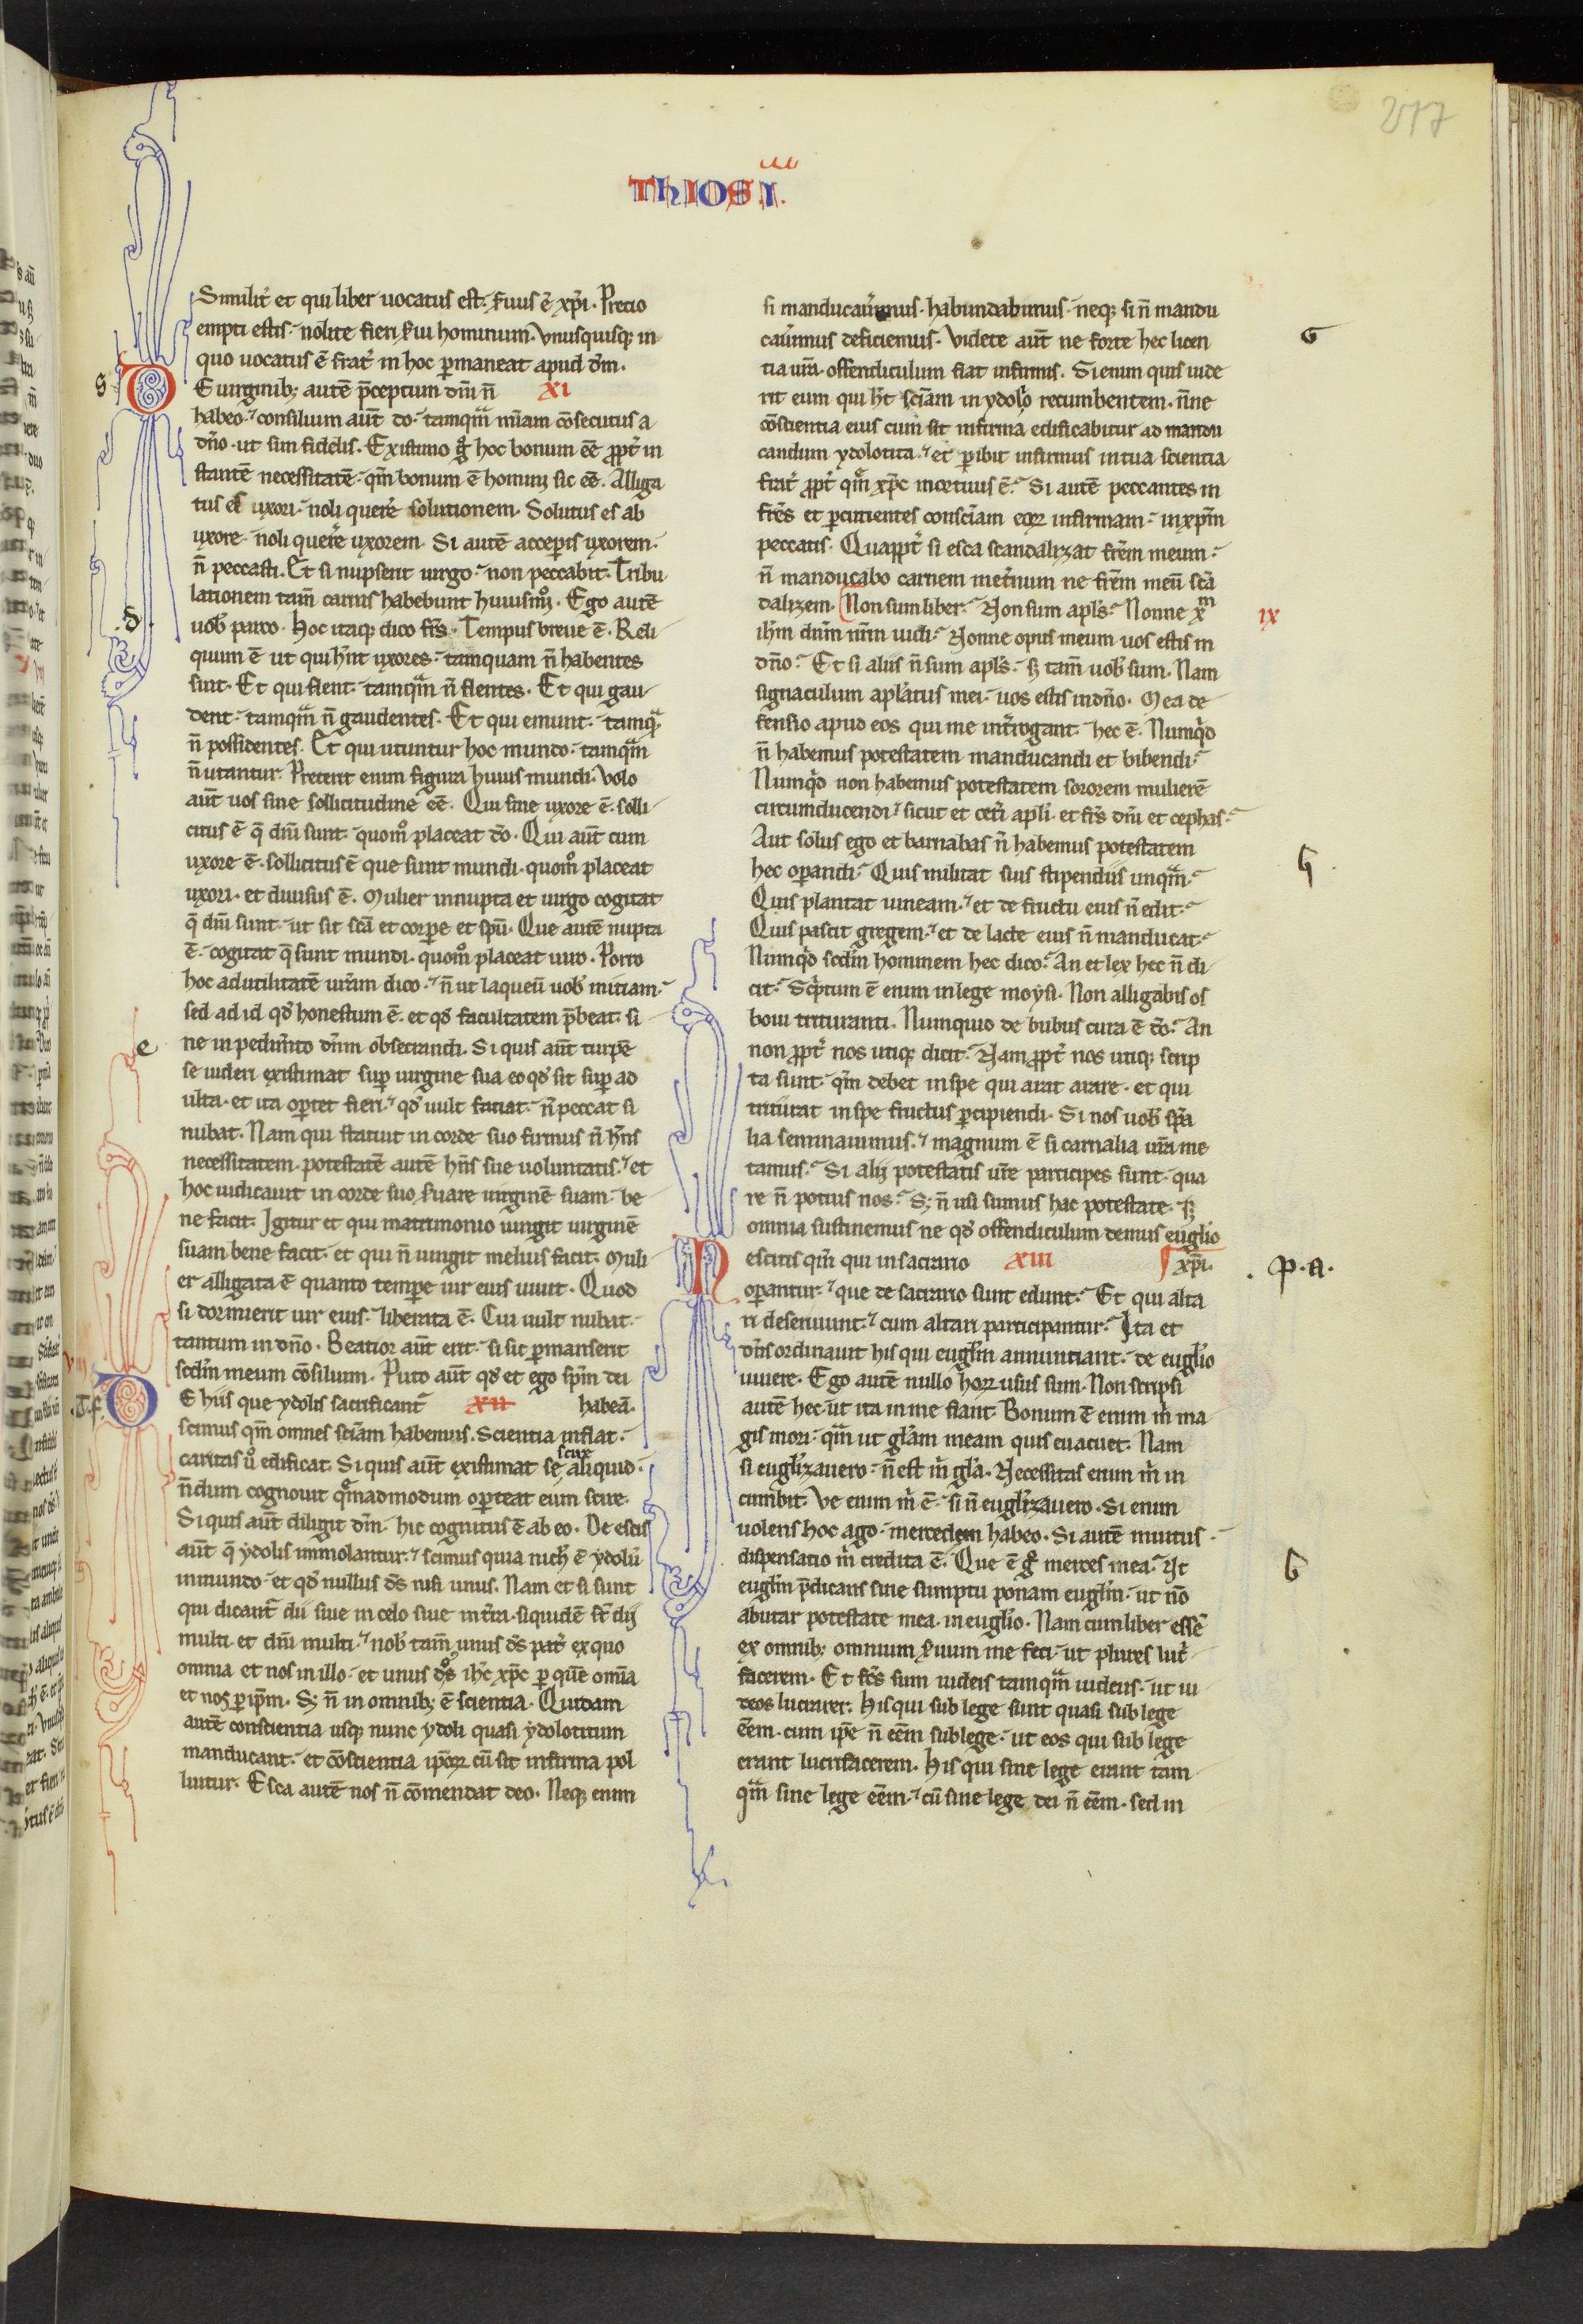 217
THIOS .I.
Similit̉ et qui liber uocatus est. s̉uus ē xp̄i. Precio
empti estis. nolite fieri s̉ui hominum. Vnusquisq; in
quo uocatus ē frat̉ in hoc ꝑmaneat apud dm̄.
DE uirginib; autē p̄ceptum dn̄i n̄ XI
habeo. consilium aut̄ do. tamqm̄ mīam cōsecutus a
dn̄o. ut sim fidelis. Existimo g̊ hoc bonum eē ꝓpt̉ in
stantē necessitatē. qm̄ bonum ē homini sic eē. Alliga
tus es uxori. noli querẻ solutionem. Solutus es ab
uxore. noli querẻ uxorem. Si autē acceꝑis uxorem.
n̄ peccasti. Et si nupserit uirgo. non peccabit. Tribu
lationem tam̄ carnis habebunt huiusm̊. Ego autē
uob̄ parco. Hoc itaq; dico fr̄s. Tempus breue ē. Reli
quum ē ut qui hn̄t uxores. tamquam n̄ habentes
sint. Et qui flent. tamqm̄ n̄ flentes. Et qui gau
dent. tamqm̄ n̄ gaudentes. Et qui emunt. tamq̄
n̄ possidentes. Et qui utuntur hoc mundo. tamqm̄
n̄ utantur. Preterit enim figura huius mundi. Volo
aut̄ uos sine sollicitudine eē. Qui sine uxore ē. solli
citus ē q̄ dn̄i sunt. quom̊ placeat do̅. Qui aut̄ cum
uxore ē. sollicitus ē que sunt mundi. quom̊ placeat
uxori. et diuisus ē. Mulier innupta et uirgo cogitat
q̄ dn̄i sunt. ut sit sc̄a et corꝑe et spū. Que autē nupta
ē. cogitat q̄ sunt mundi. quom̊ placeat uiro. Porro
hoc ad utilitatē urām dico. n̄ ut laqueū uob̄ iniciam.
sed ad id qd̄ honestum ē. et qd̄ facultatem p̄beat. si
ne inpedim̉to dn̄m obsecrandi. Si quis aut̄ turpē
se uideri existimat suꝑ uirgine sua eo qd̄ sit suꝑ ad
ulta. et ita oꝑtet fieri. qd̄ uult faciat. n̄ peccat si
nubat. Nam qui statuit in corde suo firmus n̄ hn̄s
necessitatem. potestatē autē hn̄s sue uoluntatis. et
hoc iudicauit in corde suo s̉uare uirginē suam. be
ne facit. Igitur et qui matrimonio iungit uirginē
suam bene facit. et qui n̄ iungit melius facit. Muli
er alligata ē quanto tempꝑe uir eius uiuit. Quod
si dormierit uir eius. liberata ē. Cui uult nubat.
tantum in dn̄o. Beatior aut̄ erit. si sic ꝑmanserit
scdm̄ meum cōsilium. Puto aut̄ qd̄ et ego spm̄ dei
DE hiis que ydolis sacrificant̉ XII habeā.
scimus qm̄ omnes sciam habemus. Scientia inflat.
caritas ů edificat. Si quis aut̄ existimat se scire aliquid.
n̄dum cognouit q̄madmodum oꝑteat eum scire.
Si quis aut̄ diligit dm̄. hic cognitus ē ab eo. De escis
aut̄ q̄ ydolis immolantur. scimus quia nich̄ ē ydolū
in mundo. et qd̄ nullus ds̄ nisi unus. Nam et si sunt
qui dicant̉ dii siue in celo siue in t̉ra. siquidē st̄ dij
multi. et dn̄i multi. nob̄ tam̄ unus ds̄ pat̉ ex quo
omnia et nos in illo. et unus dn̄s ih̄c xp̄c ꝑ quē omīa
et nos ꝑ ip̄m. S; n̄ in omnib; ē scientia. Quidam
autē conscientia usq; nunc ydoli quasi ydolotitum
manducant. et cōscientia ip̄oꝝ cū sit infirma pol
luitur. Esca autē nos n̄ cōmendat deo. Neq; enim
si manducau̓imus. habundabimus. neq; si n̄ mandu
cau̓imus deficiemus. Videte aut̄ ne forte hec licen
tia ur̄a. offendiculum fiat infirmis. Si enim quis uide
rit eum qui h̄t sciam in ydolio recumbentem. n̄ne
cōscientia eius cum sit infirma edificabitur ad mandu
candum ydolotita. et ꝑibit infirmus in tua scientia
frat̉ ꝓpt̉ qm̄ xp̄c mortuus ē. Si autē peccantes in
fr̄es et ꝑcutientes consciam eoꝝ infirmam. in xpm̄
peccatis. Quaꝓpt̉ si esca scandalizat fr̄em meum.
n̄ manducabo carnem in et̉num ne fr̄em meū scā
dalizem. Non sum liber. Non sum apls̄. Nonne xm̄ IX
ihm̄ dnm̄ nr̄m uidi. Nonne opus meum uos estis in
dn̄o. Et si aliis n̄ sum apls̄. s; tam̄ uob̄ sum. Nam
signaculum aplatus mei. uos estis in dn̄o. Mea de
fensio apud eos qui me int̉rogant. hec ē. Numqd̄
n̄ habemus potestatem manducandi et bibendi.
Numqd̄ non habemus potestatem sororem mulierē
circumducendi. sicut et cet̉i apli. et fr̄s dn̄i et cephas.
Aut solus ego et barnabas n̄ habemus potestatem
hec oꝑandi. Quis militat suis stipendiis unqm̄.
Quis plantat uineam. et de fructu eius n̄ edit.
Quis pascit gregem. et de lacte eius n̄ manducat.
Numqd̄ scdm̄ hominem hec dico. An et lex hec n̄ di
cit. Sc̉ptum ē enim in lege moysi. Non alligabis os
boui trituranti. Numquid de bubus cura ē do̅. An
non ꝓpt̉ nos utiq; dicit. Nam ꝓpt̉ nos utiq; scrip
ta sunt. qm̄ debet in spe qui arat arare. et qui
triturat in spe fructus ꝑcipiendi. Si nos uob̄ sp̄a
lia seminauimus. magnum ē si carnalia ur̄a me
tamus. Si alij potestatis ur̄e participes sunt. qua
re n̄ potius nos. S; n̄ usi sumus hac potestate. s;
omnia sustinemus ne qd̄ offendiculum demus euglio
Nescitis qm̄ qui in sacrario XIII xp̄i.
oꝑantur. que de sacrario sunt edunt. Et qui alta
ri deseruiunt. cum altari participantur. Ita et
dn̄s ordinauit his qui euglm̄ annuntiant. de euglio
uiuere. Ego autē nullo hoꝝ usus sum. Non scripsi
autē hec ut ita in me fiant. Bonum ē enim m̉ ma
gis mori. qm̄ ut gl̄am meam quis euacuet. Nam
si euglizauero. n̄ est m̉ gl̄a. Necessitas enim m̉ in
cumbit. Ve enim m̉ ē. si n̄ euglizauero. Si enim
uolens hoc ago. mercedem habeo. Si autē inuitus.
dispensatio m̉ credita ē. Que ē g̊ merces mea. Vt
euglm̄ p̄dicans sine sumptu ponam euglm̄. ut nō
abutar potestate mea in euglio. Nam cum liber essē
ex omnib; omnium s̉uum me feci. ut plures luc̉
facerem. Et fc̄s sum iudeis tamqm̄ iudeus. ut iu
deos lucrarer. His qui sub lege sunt quasi sub lege
eēm. cum ip̄e n̄ eēm sub lege. ut eos qui sub lege
erant lucrifacerem. His qui sine lege erant tam
qm̄ sine lege eēm. cū sine lege dei n̄ eēm. sed in
S
d
e
.T.f.
G
G
.P.A.
G